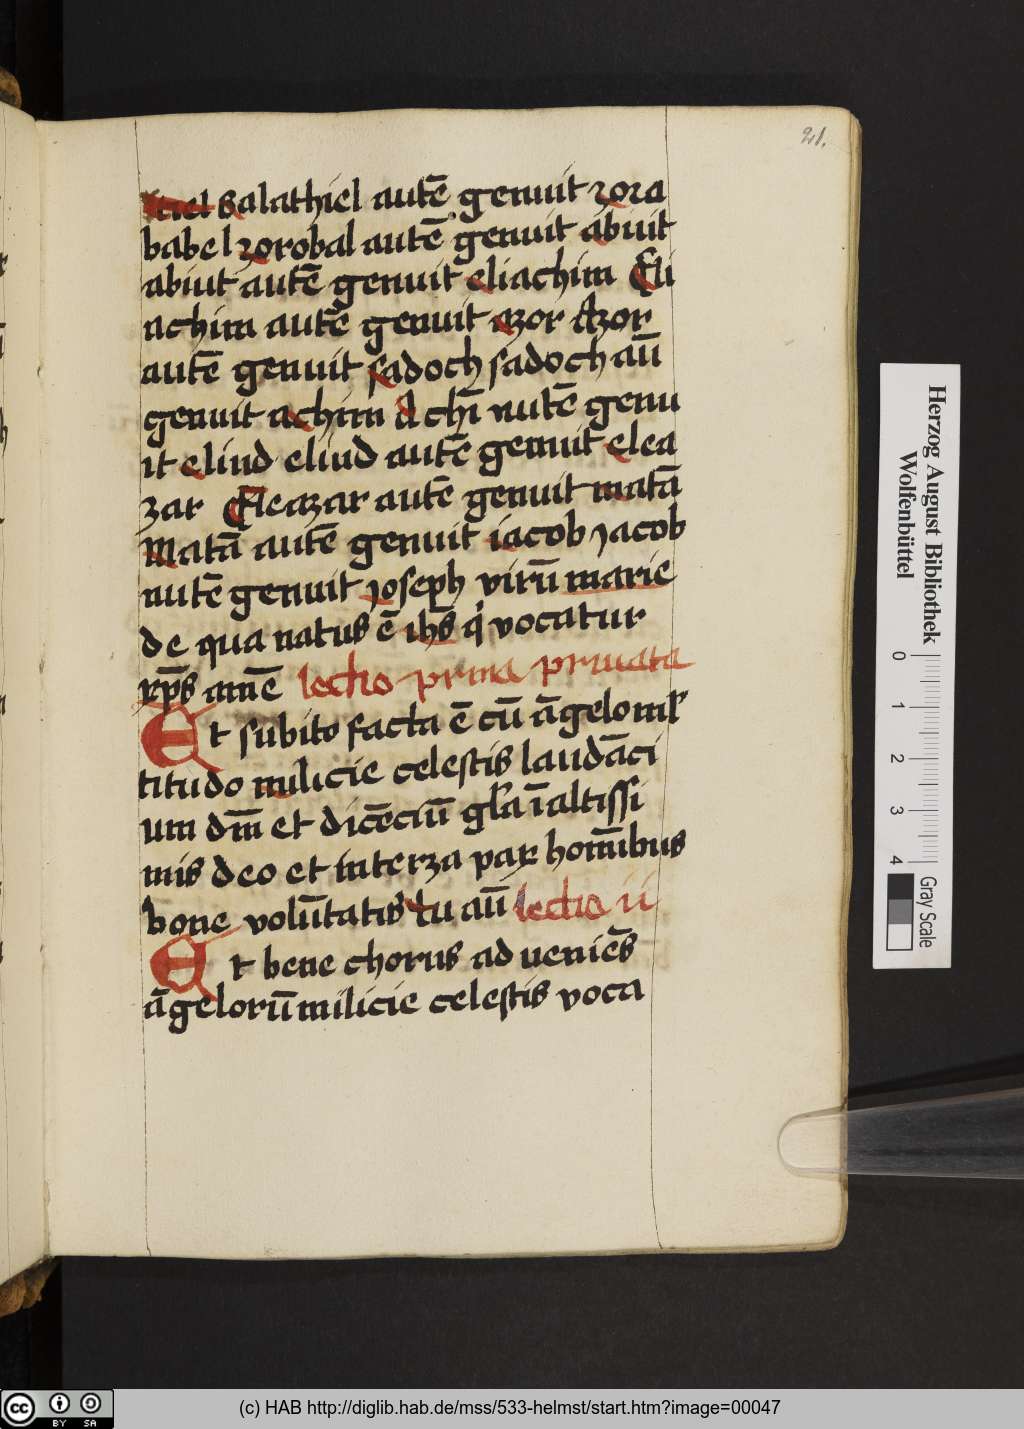 21.
thiel Salathiel autē genuit zora
babel zorobal autē genuit abiut
abiut autē genuit eliachim Eli
achim autē genuit azor Azor
autē genuit sadoch sadoch aū
genuit achim Achī autē genu
it eliud eliud autē genuit elea
zar Eleazar autē genuit matā
Matā autē genuit iacob Jacob
autē genuit Joseph virū marie
de qua natus ē ihs̄ q' vocatur
xp̄s amē lectio prima priuata
Et subito facta ē cū āgelo ml'
titudo milicie celestis laudāci
um dm̄ et dicēciū gl̄a ī altissi
mis deo et in terza pax hom̄ibus
bone volūtatis tu aū lectio ii
Et bene chorus ad ueniēs
āgelorū milicie celestis voca
Herzog August Bibliothek
Wolfenbüttel
0 1 2 3 4
Gray Scale
cc BY SA
(c) HAB http://diglib.hab.de/mss/533-helmst/start.htm?image=00047